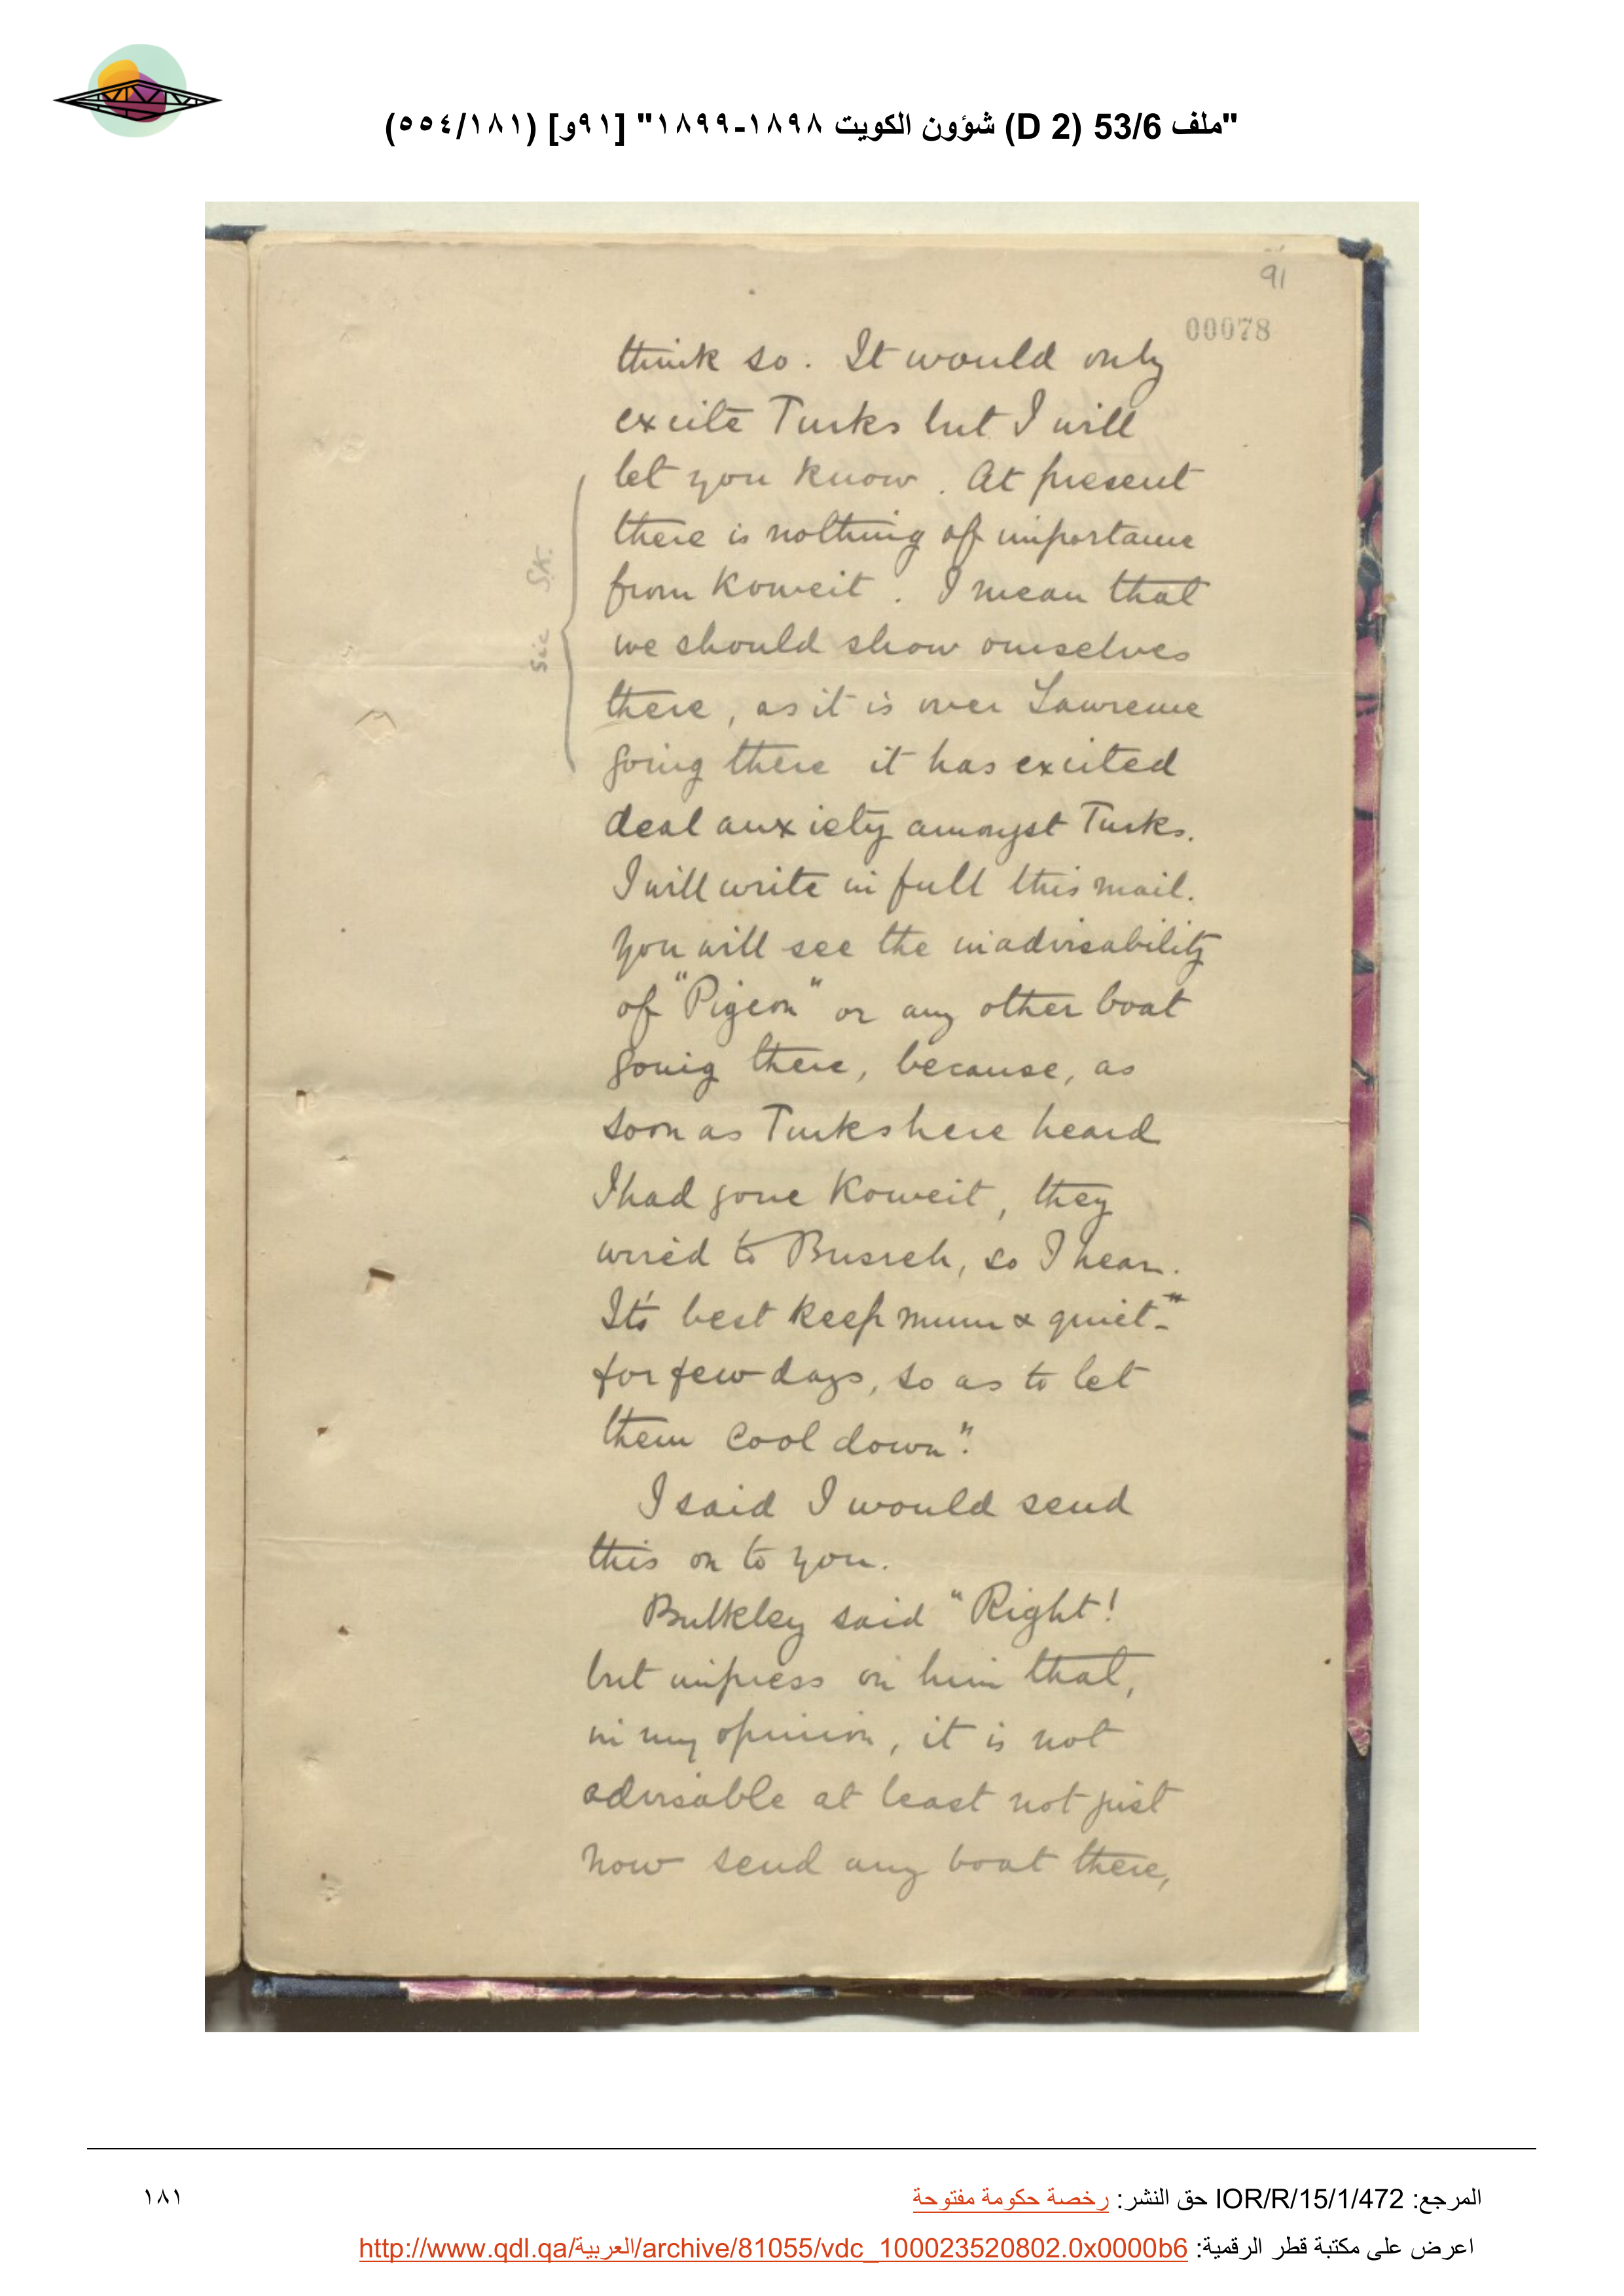 "ملف 53/6 (D 2) شؤون الكويت ١٨٩٨-١٨٩٩" [٩١و] (٥٥٤/١٨١)
91
00078
think so. It would only
excite Turks but I will
let you know. At present
there is nothing of importance
from Koweit. I mean that
we should show ourselves
there, as it is over Lawrence
going there it has excited
deal anxiety amongst Turks.
I will write in full this mail.
You will see the inadvisability
of "Pigeon" or any other boat
going there, because, as
soon as Turks here heard
I had gone Koweit, they
wired to Busreh, so I hear.
It's best keep mum & quiet -"
for few days, so as to let
them cool down".
I said I would send
this on to you.
Bulkley said "Right!
but impress on him that,
in my opinion, it is not
advisable at least not just
now send any boat there,
Sic SK.
المرجع: IOR/R/15/1/472 حق النشر: رخصة حكومة مفتوحة
١٨١
اعرض على مكتبة قطر الرقمية: http://www.qdl.qa/العربية/archive/81055/vdc_100023520802.0x0000b6